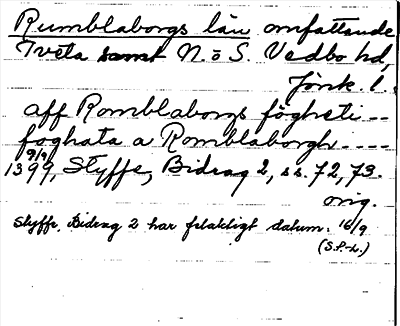 Rumblaborgs län omfattande
Tveta samt N. o S. Vedbo hd,
Jönk. l.
aff Romblaborgs föghati --
foghata a Romblaborgh ----
9/9
1399, Styffe, Bidrag 2, ss. 72, 73.
orig.
Styffe, Bidrag 2 har felaktigt datum. 16/9
(S.P-L.)